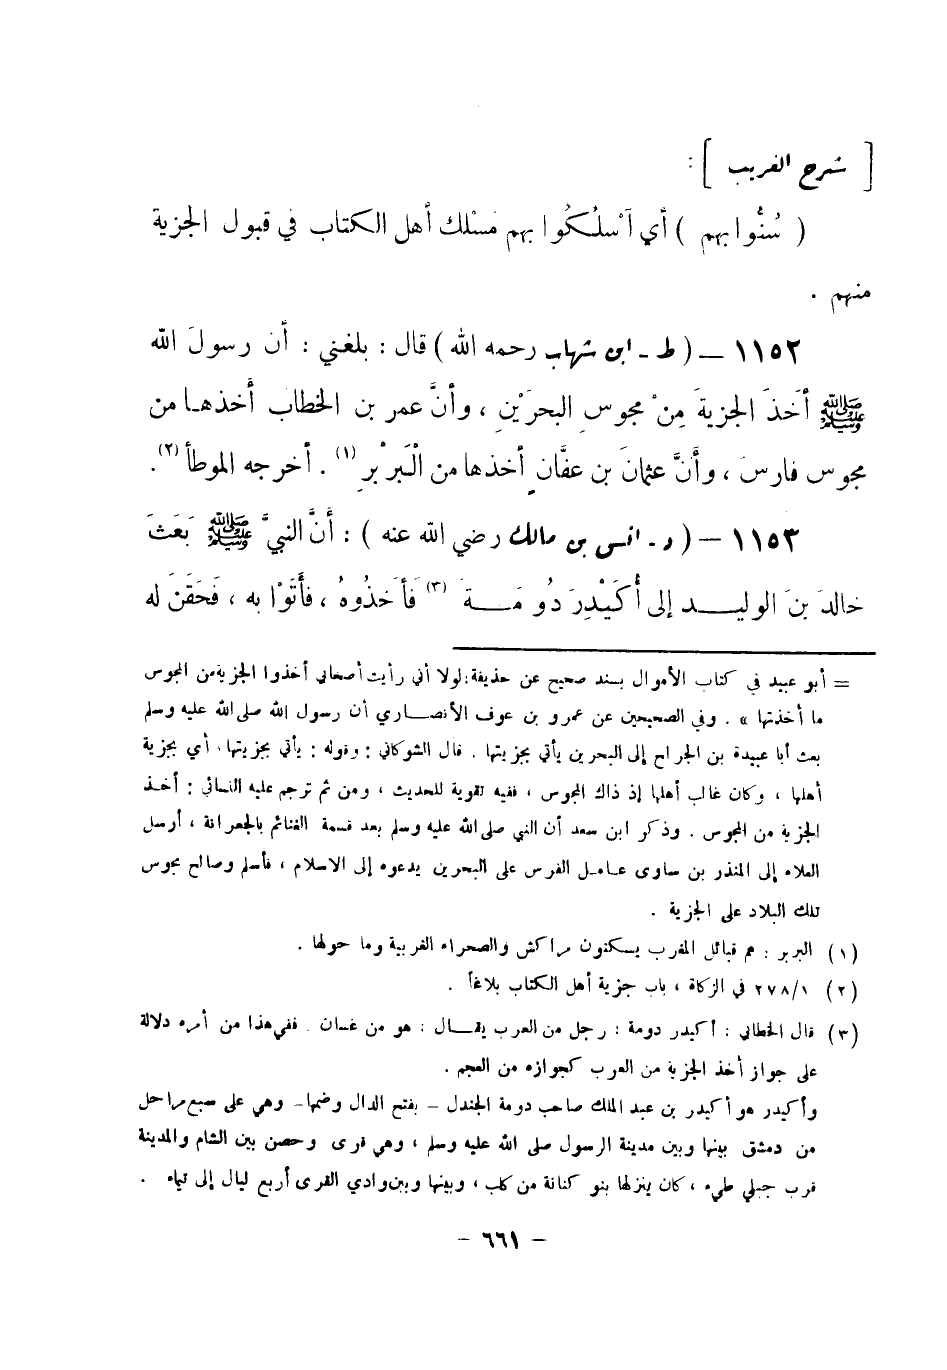 [ شرح الغريب ] :
( سُنُّوا بهم ) أي آسْلُكُوا بهم مَسْلك أهل الكتاب في قبول الجزية
منهم .
١١٥٢ – ( ط - ابن شهاب رحمه الله ) قال : بلغني : أن رسولَ الله
ﷺ أَخذَ الجزيةَ مِنْ مجوسِ البحرَيْنِ ، وأنَّ عمر بن الخطاب أَخذهـا من
مجوس فارسَ ، وأَنَّ عثمانَ بن عفَّان أخذها من الْبَرْبرِ (١) . أخرجه الموطأ (٢).
١١٥٣ – ( د - انس بن مالك رضي الله عنه ) : أَنَّ النبيَّ ﷺ بَعَثَ
خالدَ بنَ الوليـــد إلى أُكَيْدِرَ دُومَـــةَ (٣) فَأَخَذُوهُ ، فأَتَوْا به ، فَحَقَنَ له
= أبو عبيد في كتاب الأموال بسند صحيح عن حذيفة: لولا أني رأيت أصحابي أخذوا الجزية من المجوس
ما أخذتها » . وفي الصحيحين عن عمرو بن عوف الأنصـاري أن رسول الله صلى الله عليه وسلم
بعث أبا عبيدة بن الجراح إلى البحرين يأتي بجزيتها . قال الشوكاني : وقوله : يأتي بجزيتها ، أي بجزية
أهلها ، وكان غالب أهلها إذ ذاك المجوس ، ففيه تقوية للحديث ، ومن ثم ترجم عليه النسائي : أخـذ
الجزية من المجوس . وذكر ابن سعد أن النبي صلى الله عليه وسلم بعد قسمة الغنائم بالجعرانة ، أرسل
العلاء إلى المنذر بن ساوى عـامـل الفرس على البحرين يدعوه إلى الاسلام ، فأسلم وصالح مجوس
تلك البلاد على الجزية .
(١) البربر : هم قبائل المغرب يسكنون مراكش والصحراء الغربية وما حولها .
(٢) ٢٧٨/١ في الزكاة ، باب جزية أهل الكتاب بلاغاً .
(٣) قال الخطابي : أكيدر دومة : رجل من العرب يقـــال : هو من غسان . ففي هذا من أمره دلالة
على جواز أخذ الجزية من العرب كجوازه من العجم .
وأكيدر هو أكيدر بن عبد الملك صاحب دومة الجندل – بفتح الدال وضمها – وهي على سبع مراحل
من دمشق بينها وبين مدينة الرسول صلى الله عليه وسلم ، وهي قرى وحصن بين الشام والمدينة
قرب جبلي طيء ، كان ينزلها بنو كنانة من كلب ، وبينها وبين وادي القرى أربع ليال إلى تيماء .
– ٦٦١ –